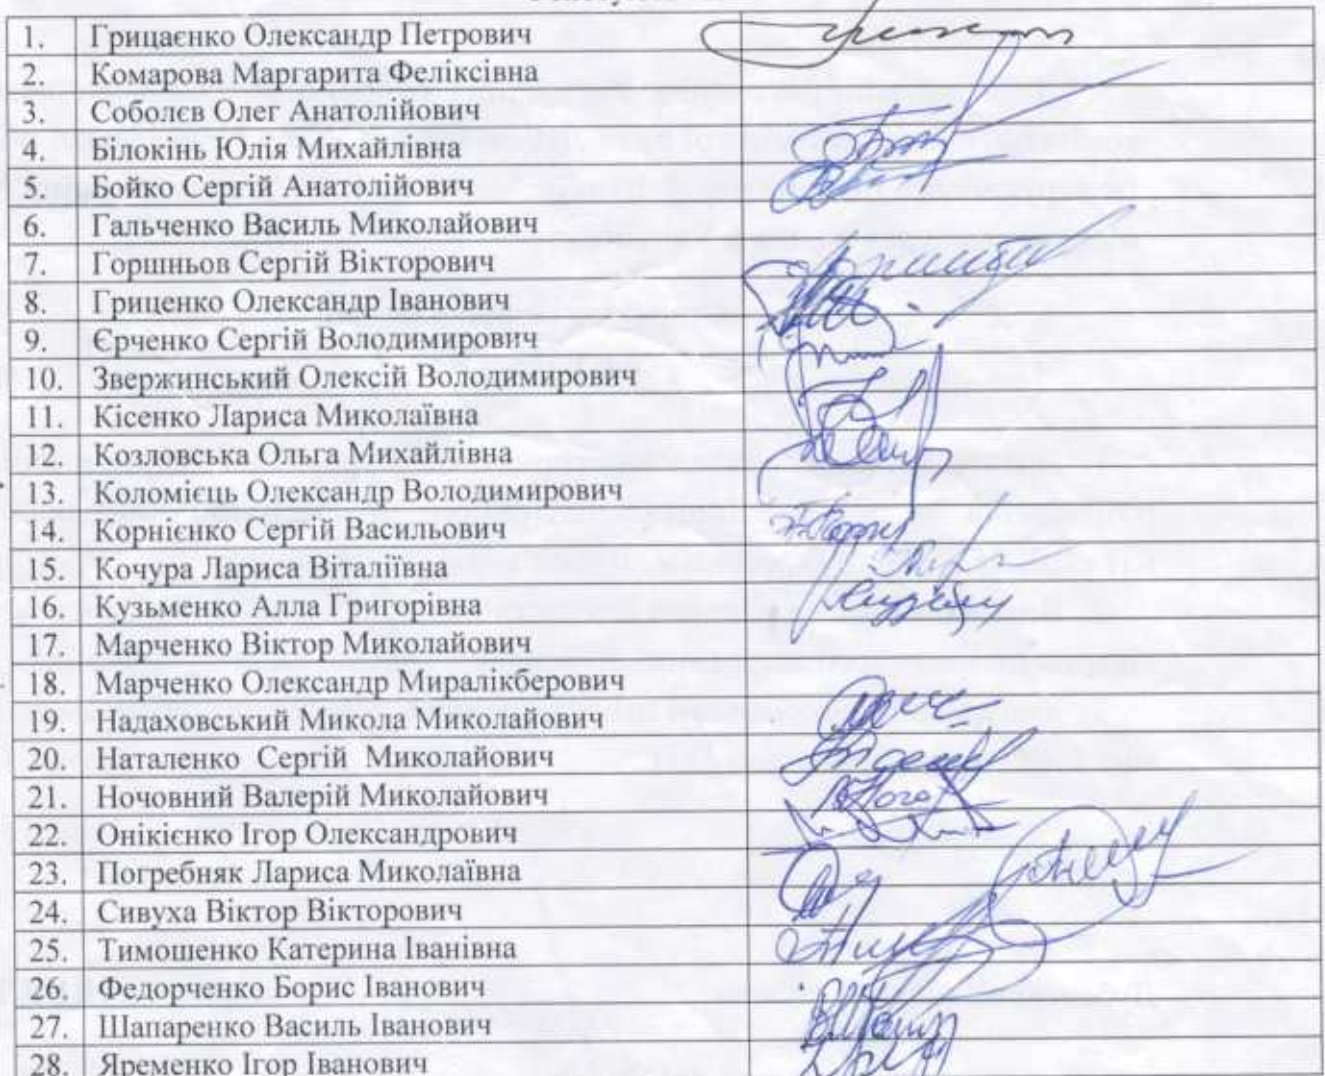 1. Грицаєнко Олександр Петрович
2. Комарова Маргарита Феліксівна
3. Соболєв Олег Анатолійович
4. Білокінь Юлія Михайлівна
5. Бойко Сергій Анатолійович
6. Гальченко Василь Миколайович
7. Горшньов Сергій Вікторович
8. Гриценко Олександр Іванович
9. Єрченко Сергій Володимирович
10. Звержинський Олексій Володимирович
11. Кісенко Лариса Миколаївна
12. Козловська Ольга Михайлівна
13. Коломієць Олександр Володимирович
14. Корнієнко Сергій Васильович
15. Кочура Лариса Віталіївна
16. Кузьменко Алла Григорівна
17. Марченко Віктор Миколайович
18. Марченко Олександр Миралікберович
19. Надаховський Микола Миколайович
20. Наталенко Сергій Миколайович
21. Ночовний Валерій Миколайович
22. Онікієнко Ігор Олександрович
23. Погребняк Лариса Миколаївна
24. Сивуха Віктор Вікторович
25. Тимошенко Катерина Іванівна
26. Федорченко Борис Іванович
27. Шапаренко Василь Іванович
28. Яременко Ігор Іванович